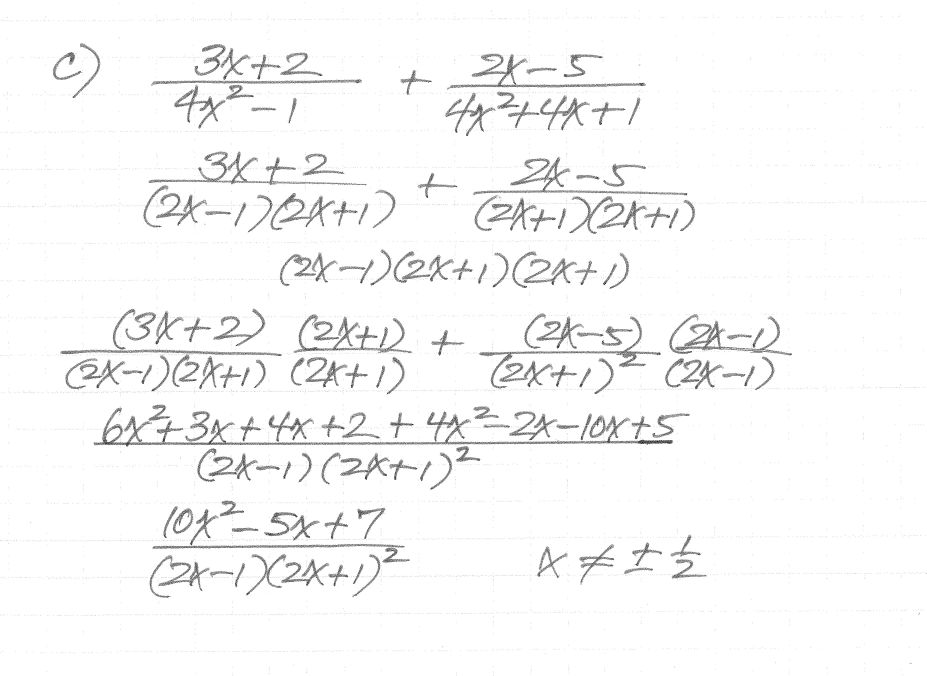 c) (3x+2)/(4x²-1) + (2x-5)/(4x²+4x+1)
(3x+2)/((2x-1)(2x+1)) + (2x-5)/((2x+1)(2x+1))
(2x-1)(2x+1)(2x+1)
(3x+2)/((2x-1)(2x+1)) (2x+1)/(2x+1) + (2x-5)/(2x+1)² (2x-1)/(2x-1)
(6x²+3x+4x+2+4x²-2x-10x+5)/((2x-1)(2x+1)²)
(10x²-5x+7)/((2x-1)(2x+1)²) x ≠ ± 1/2